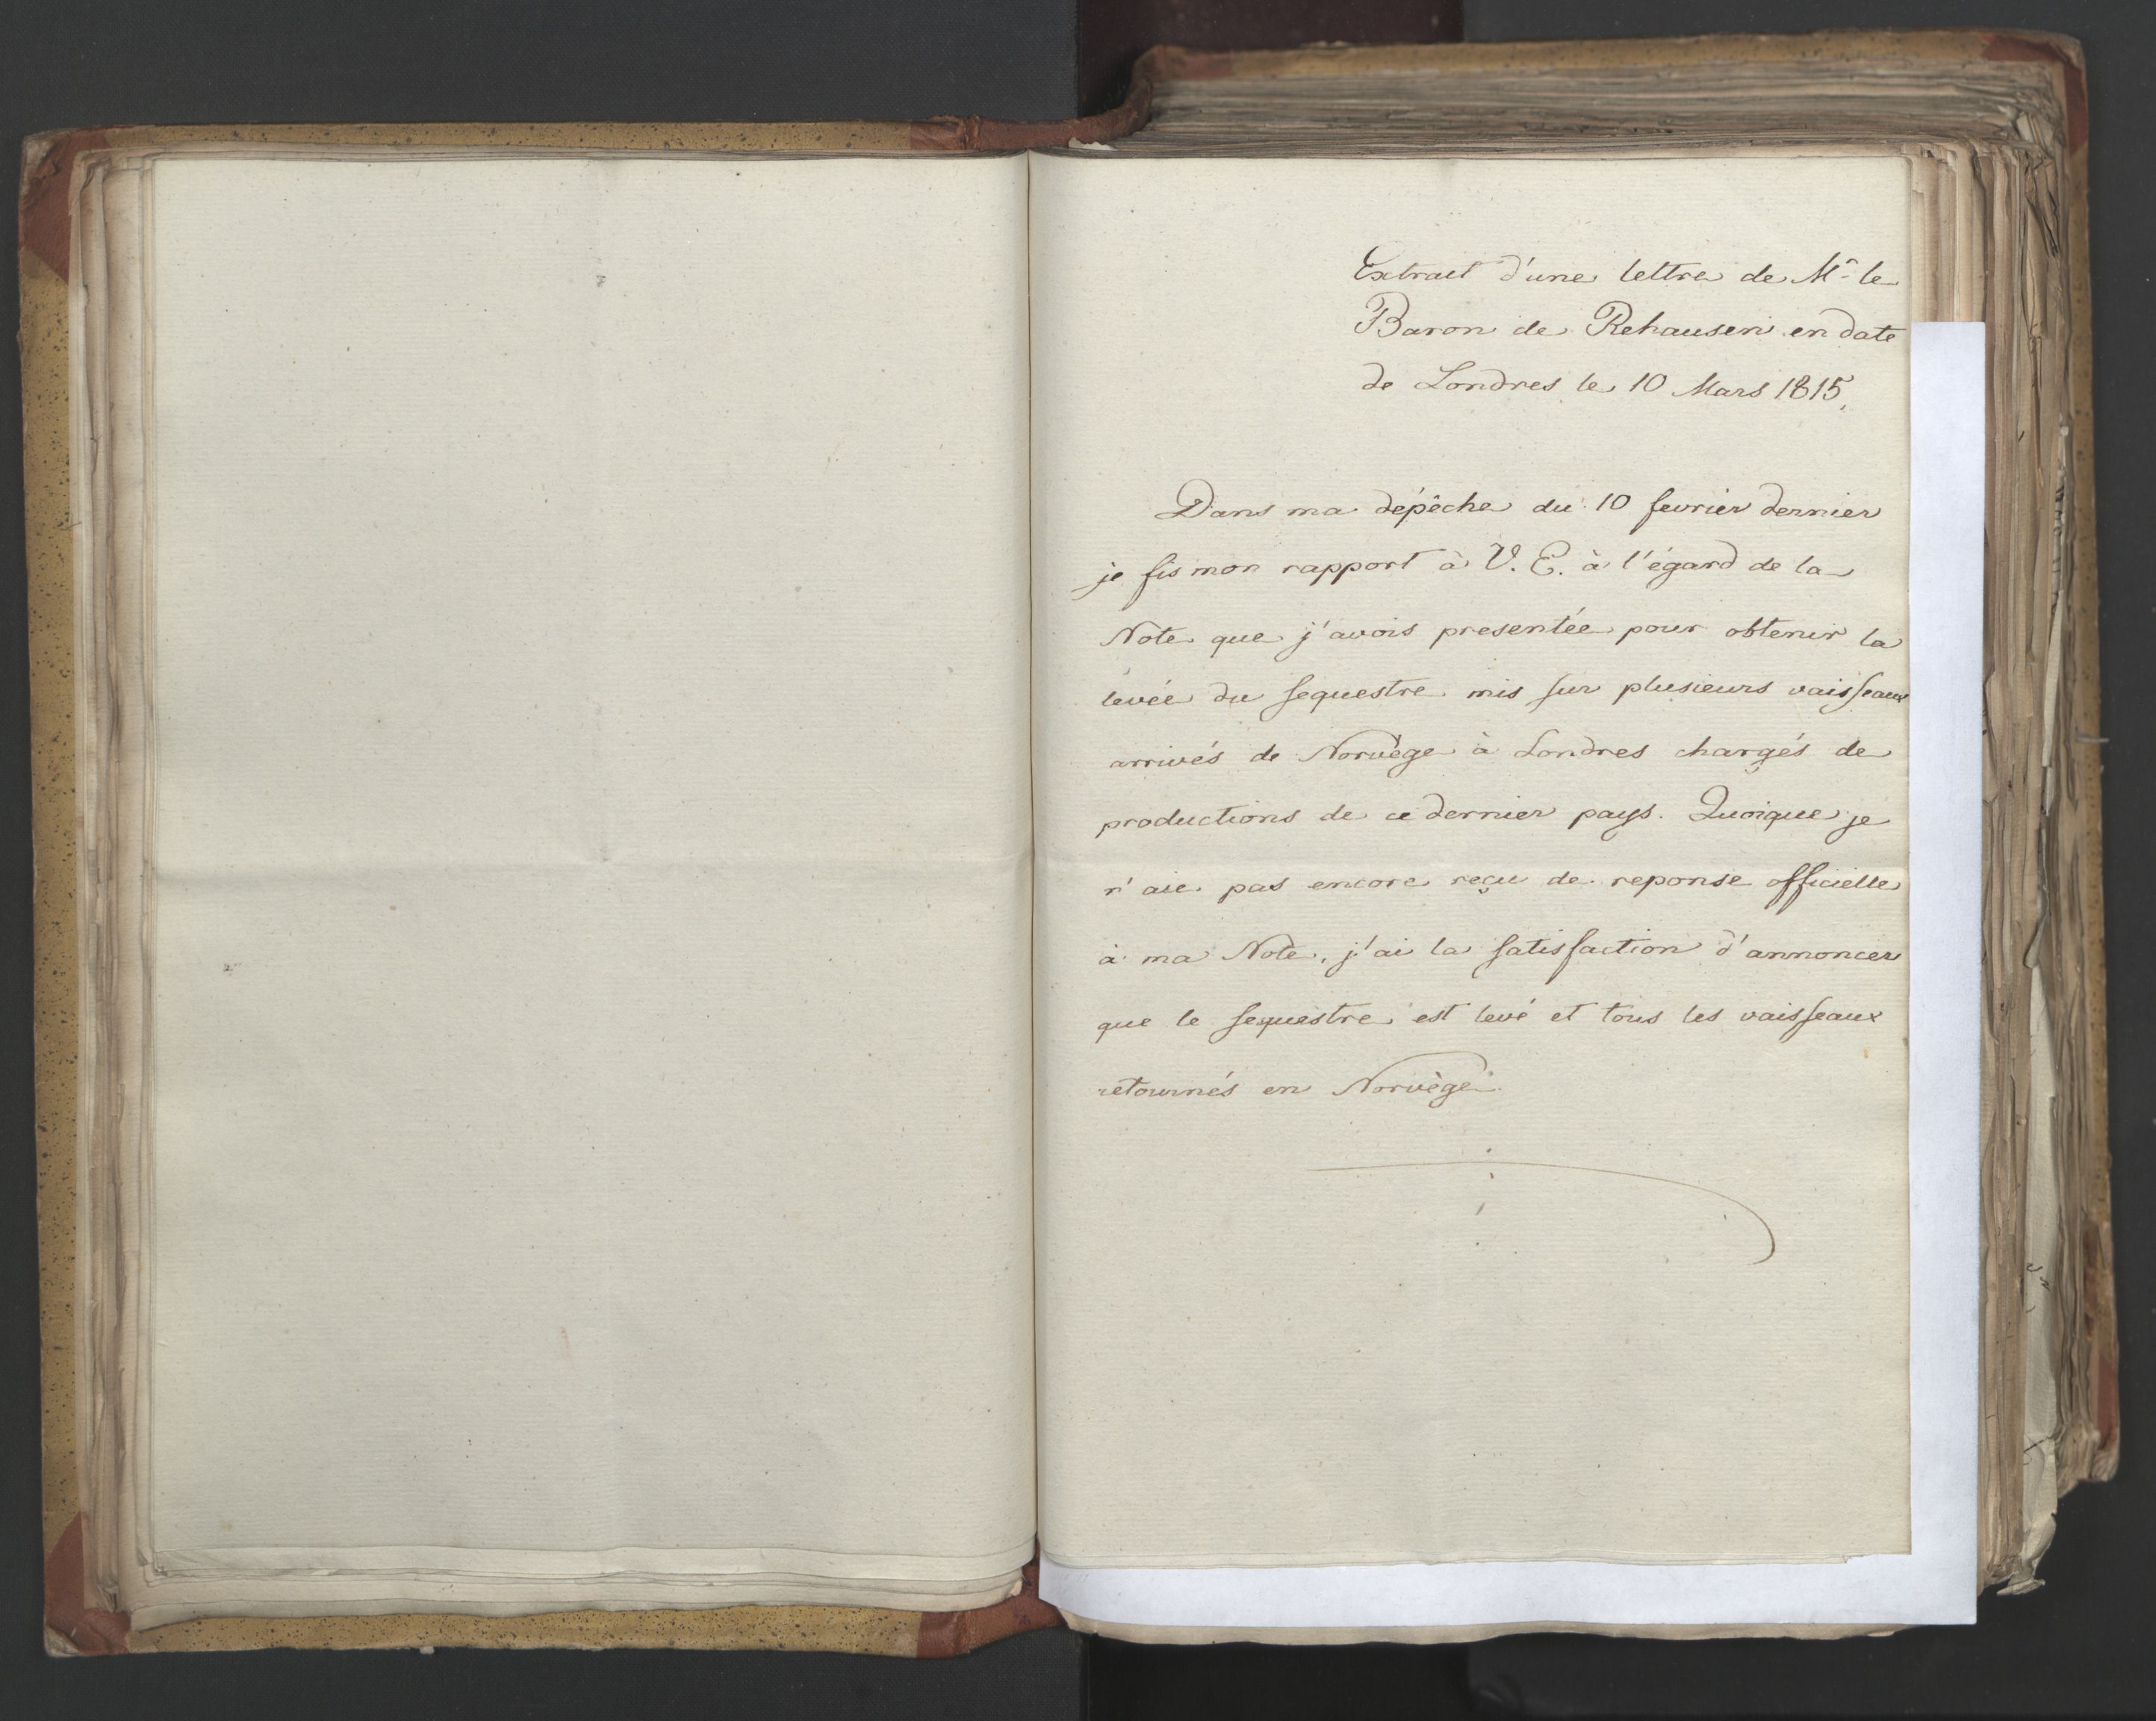 Extrait d'une lettre de Mr le
Baron de Rehausen en date
de Londres le 10 Mars 1815.
Dans ma dépêche du 10 fevrier dernier
je fis mon rapport à V. E. à l'égard de la
Note que j'avois presentée pour obtenir la
levée du sequestre mis sur plusieurs vaisseaux
arrivés de Norvège à Londres chargés de
productions de ce dernier pays. Quoique je
n'aie pas encore reçu de reponse officielle
à ma Note, j'ai la satisfaction d'annoncer
que le sequestre est levé et tous les vaisseaux
retournés en Norvège.